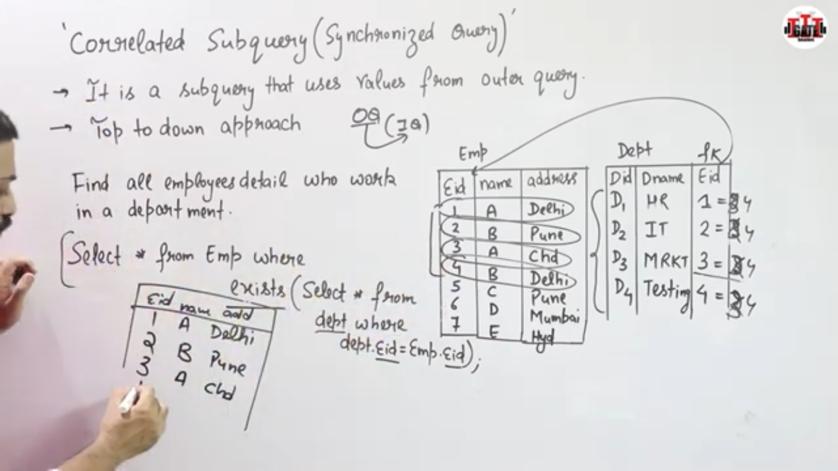 'Correlated Subquery (Synchronized Query)'
→ It is a subquery that uses values from outer query.
→ Top to down approach OQ (IQ)
Find all employees detail who work
in a department.
Select * from Emp where
exists (Select * from
dept where
dept.Eid = Emp.Eid);
Eid name add
1 A Delhi
2 B Pune
3 A Chd
Emp
Eid name address
1 A Delhi
2 B Pune
3 A Chd
4 B Delhi
5 C Pune
6 D Mumbai
7 E Hyd
Dept fk
Did Dname Eid
D1 HR 1 = 4
D2 IT 2 = 4
D3 MRKT 3 = 4
D4 Testing 4 = 4
GATE